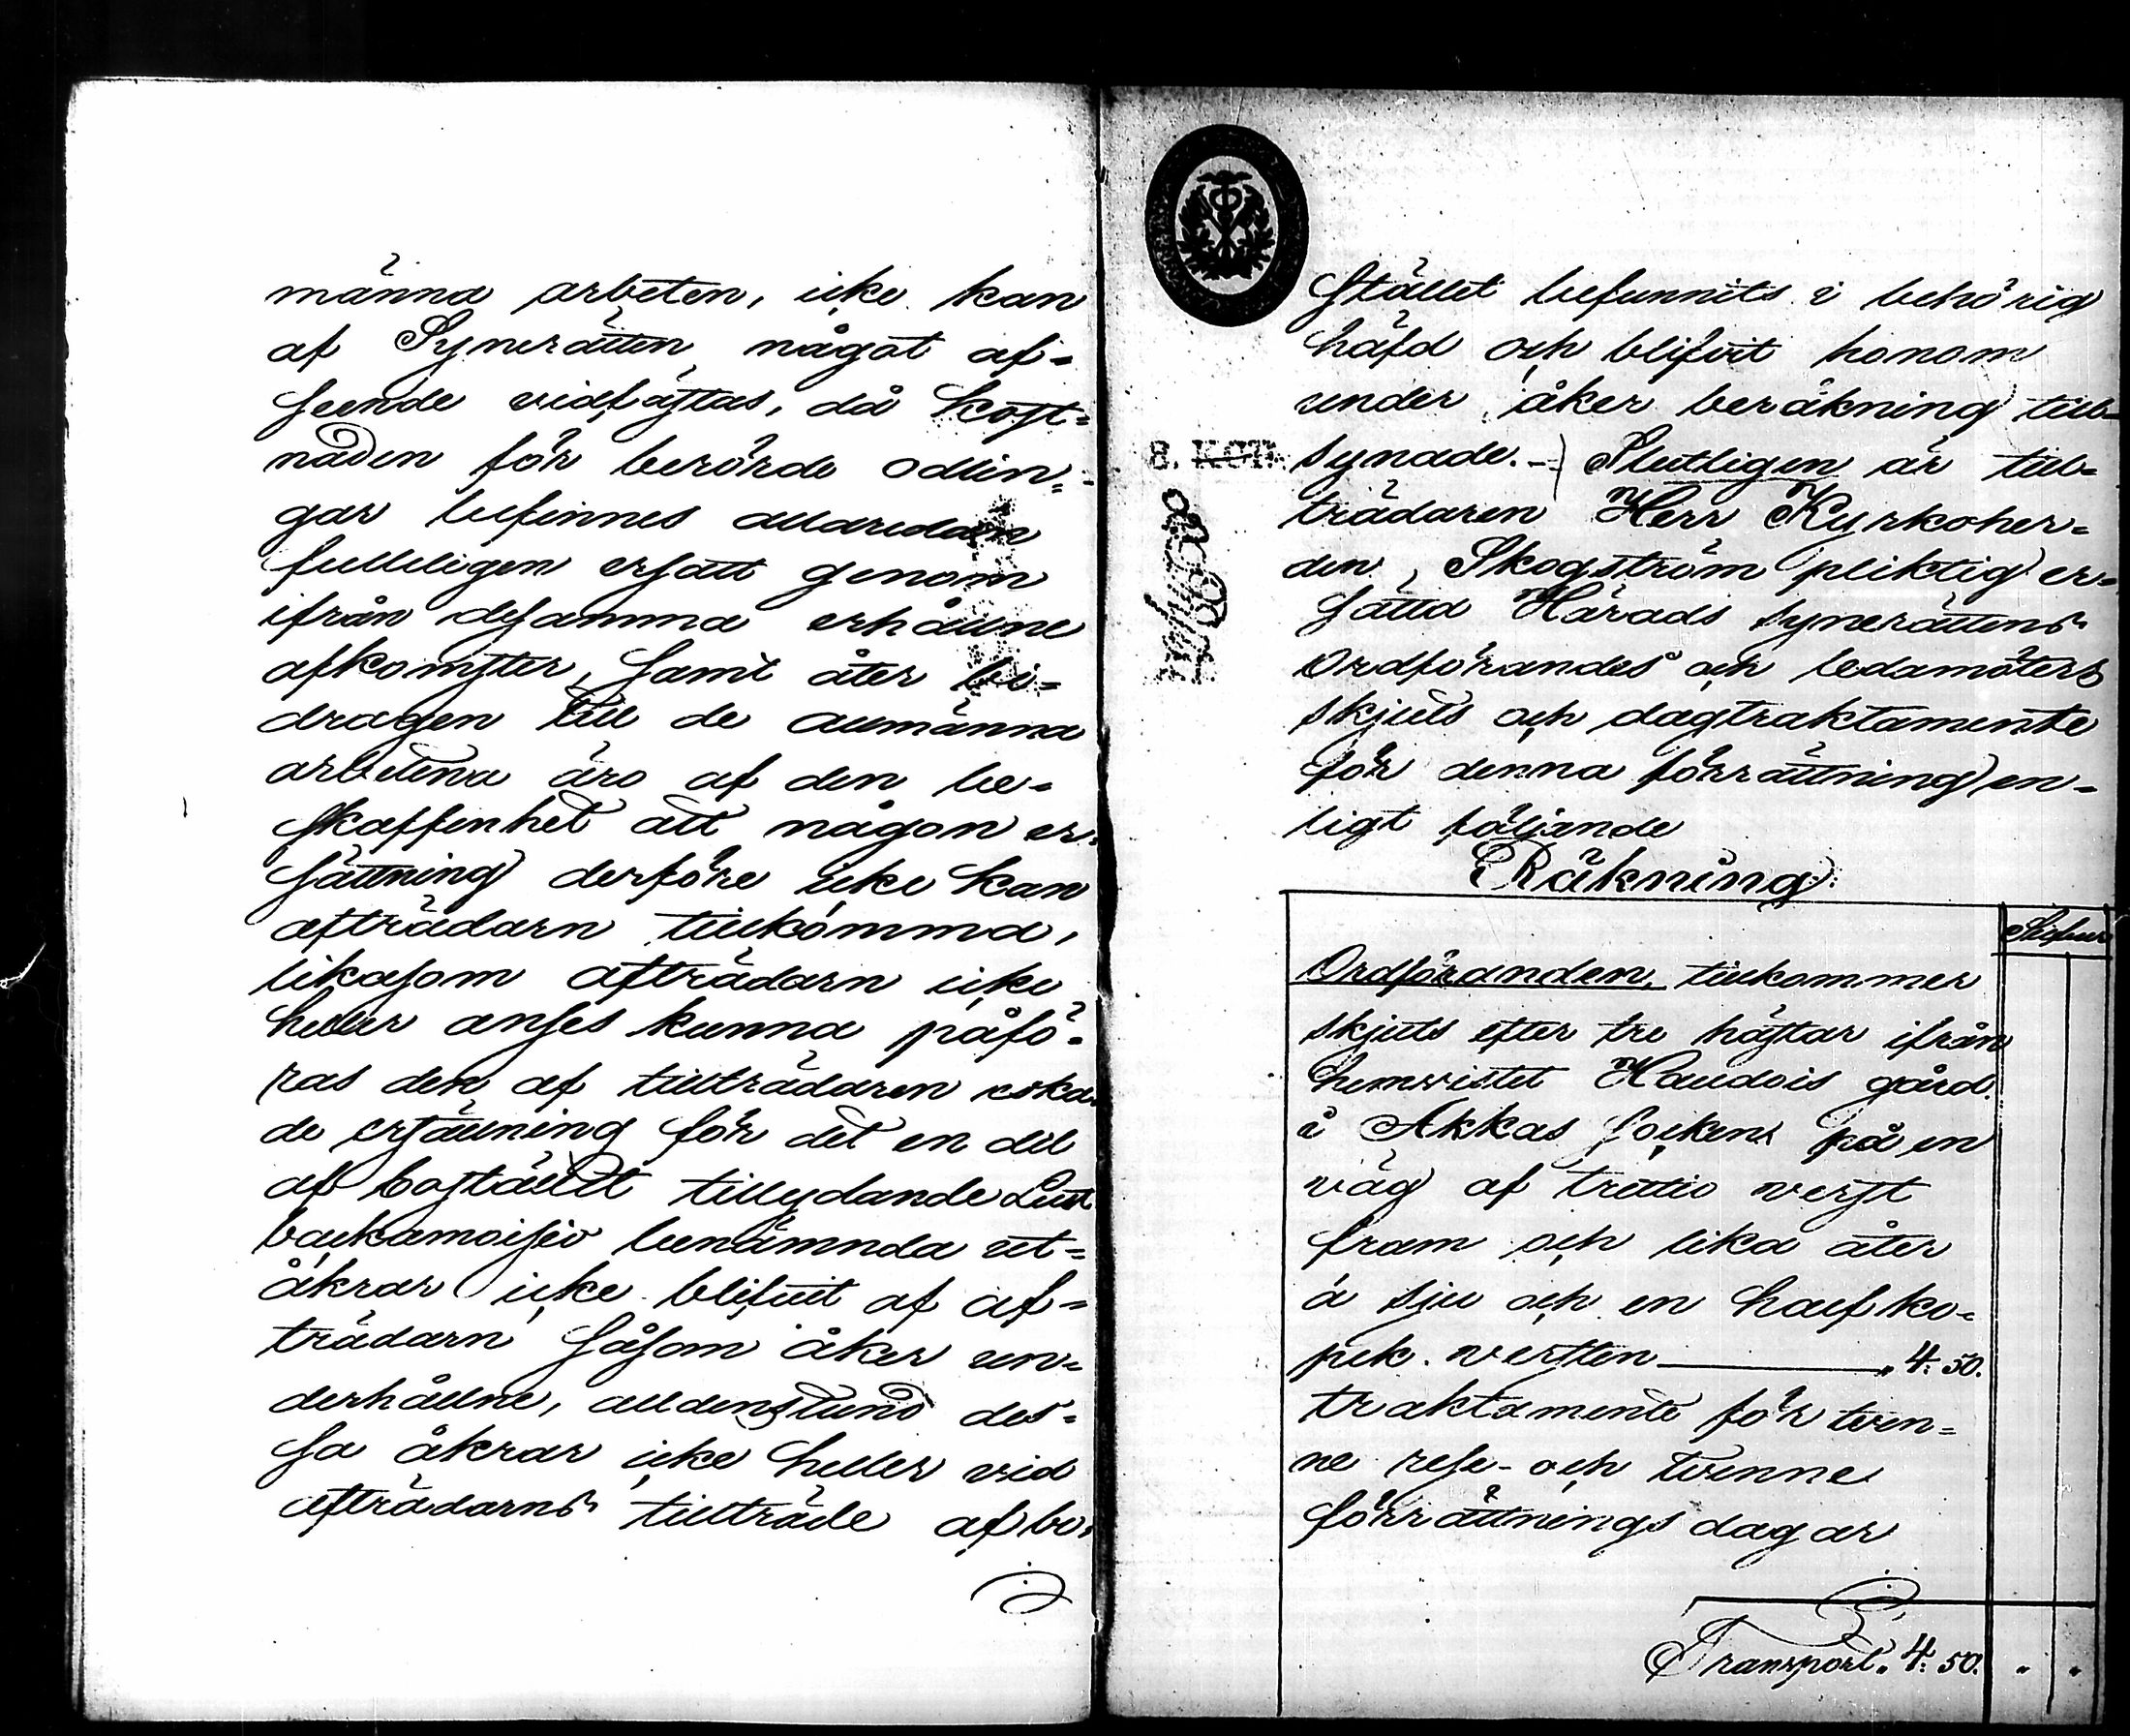 männa arbeten, icke kan
af Synerätten något af-
seende vidfästas, då kost-
naden för berörde odlin-
gar befinnes allaredan
fulleligen ersatt genom
ifrån desamma erhållne
afkomster, samt åter bi-
dragen till de allmänna
arbetena äro af den be-
skaffenhet att någon er-
sättning derföre icke kan
afträdarn tillkomma,
likasom afträdarn icke
heller anses kunna påfö-
ras den af tillträdaren äska-
de ersättning för det en del
af bostället tillydande
benämnda ut-
åkrar icke blifvit af af-
trädarn såsom åker un-
derhållne, alldenstund des-
sa åkrar icke heller vid
afträdarns tillträde af bo-
stället befunnits i behörig
häfd och blifvit honom
under åker beräkning till-
8. KOP. synade. — Slutligen är till-
trädaren Herr Kyrkoher-
den Skogström pliktig er-
sätta Härads Synerättens
Ordförandes och ledamöters
skjuts och dagtraktamente
för denna förrättning en-
ligt följande
Räkning:
Silfver
Ordföranden, tillkommer
skjuts efter tre hästar ifrån
hemvistet Haudois gård
i Akkas socken på en
väg af trettio verst
fram och lika åter
à sju och en half ko-
pek. versten 4: 50.
traktamente för tven-
ne rese- och tvenne
förrättningsdagar
Transport. 4: 50.